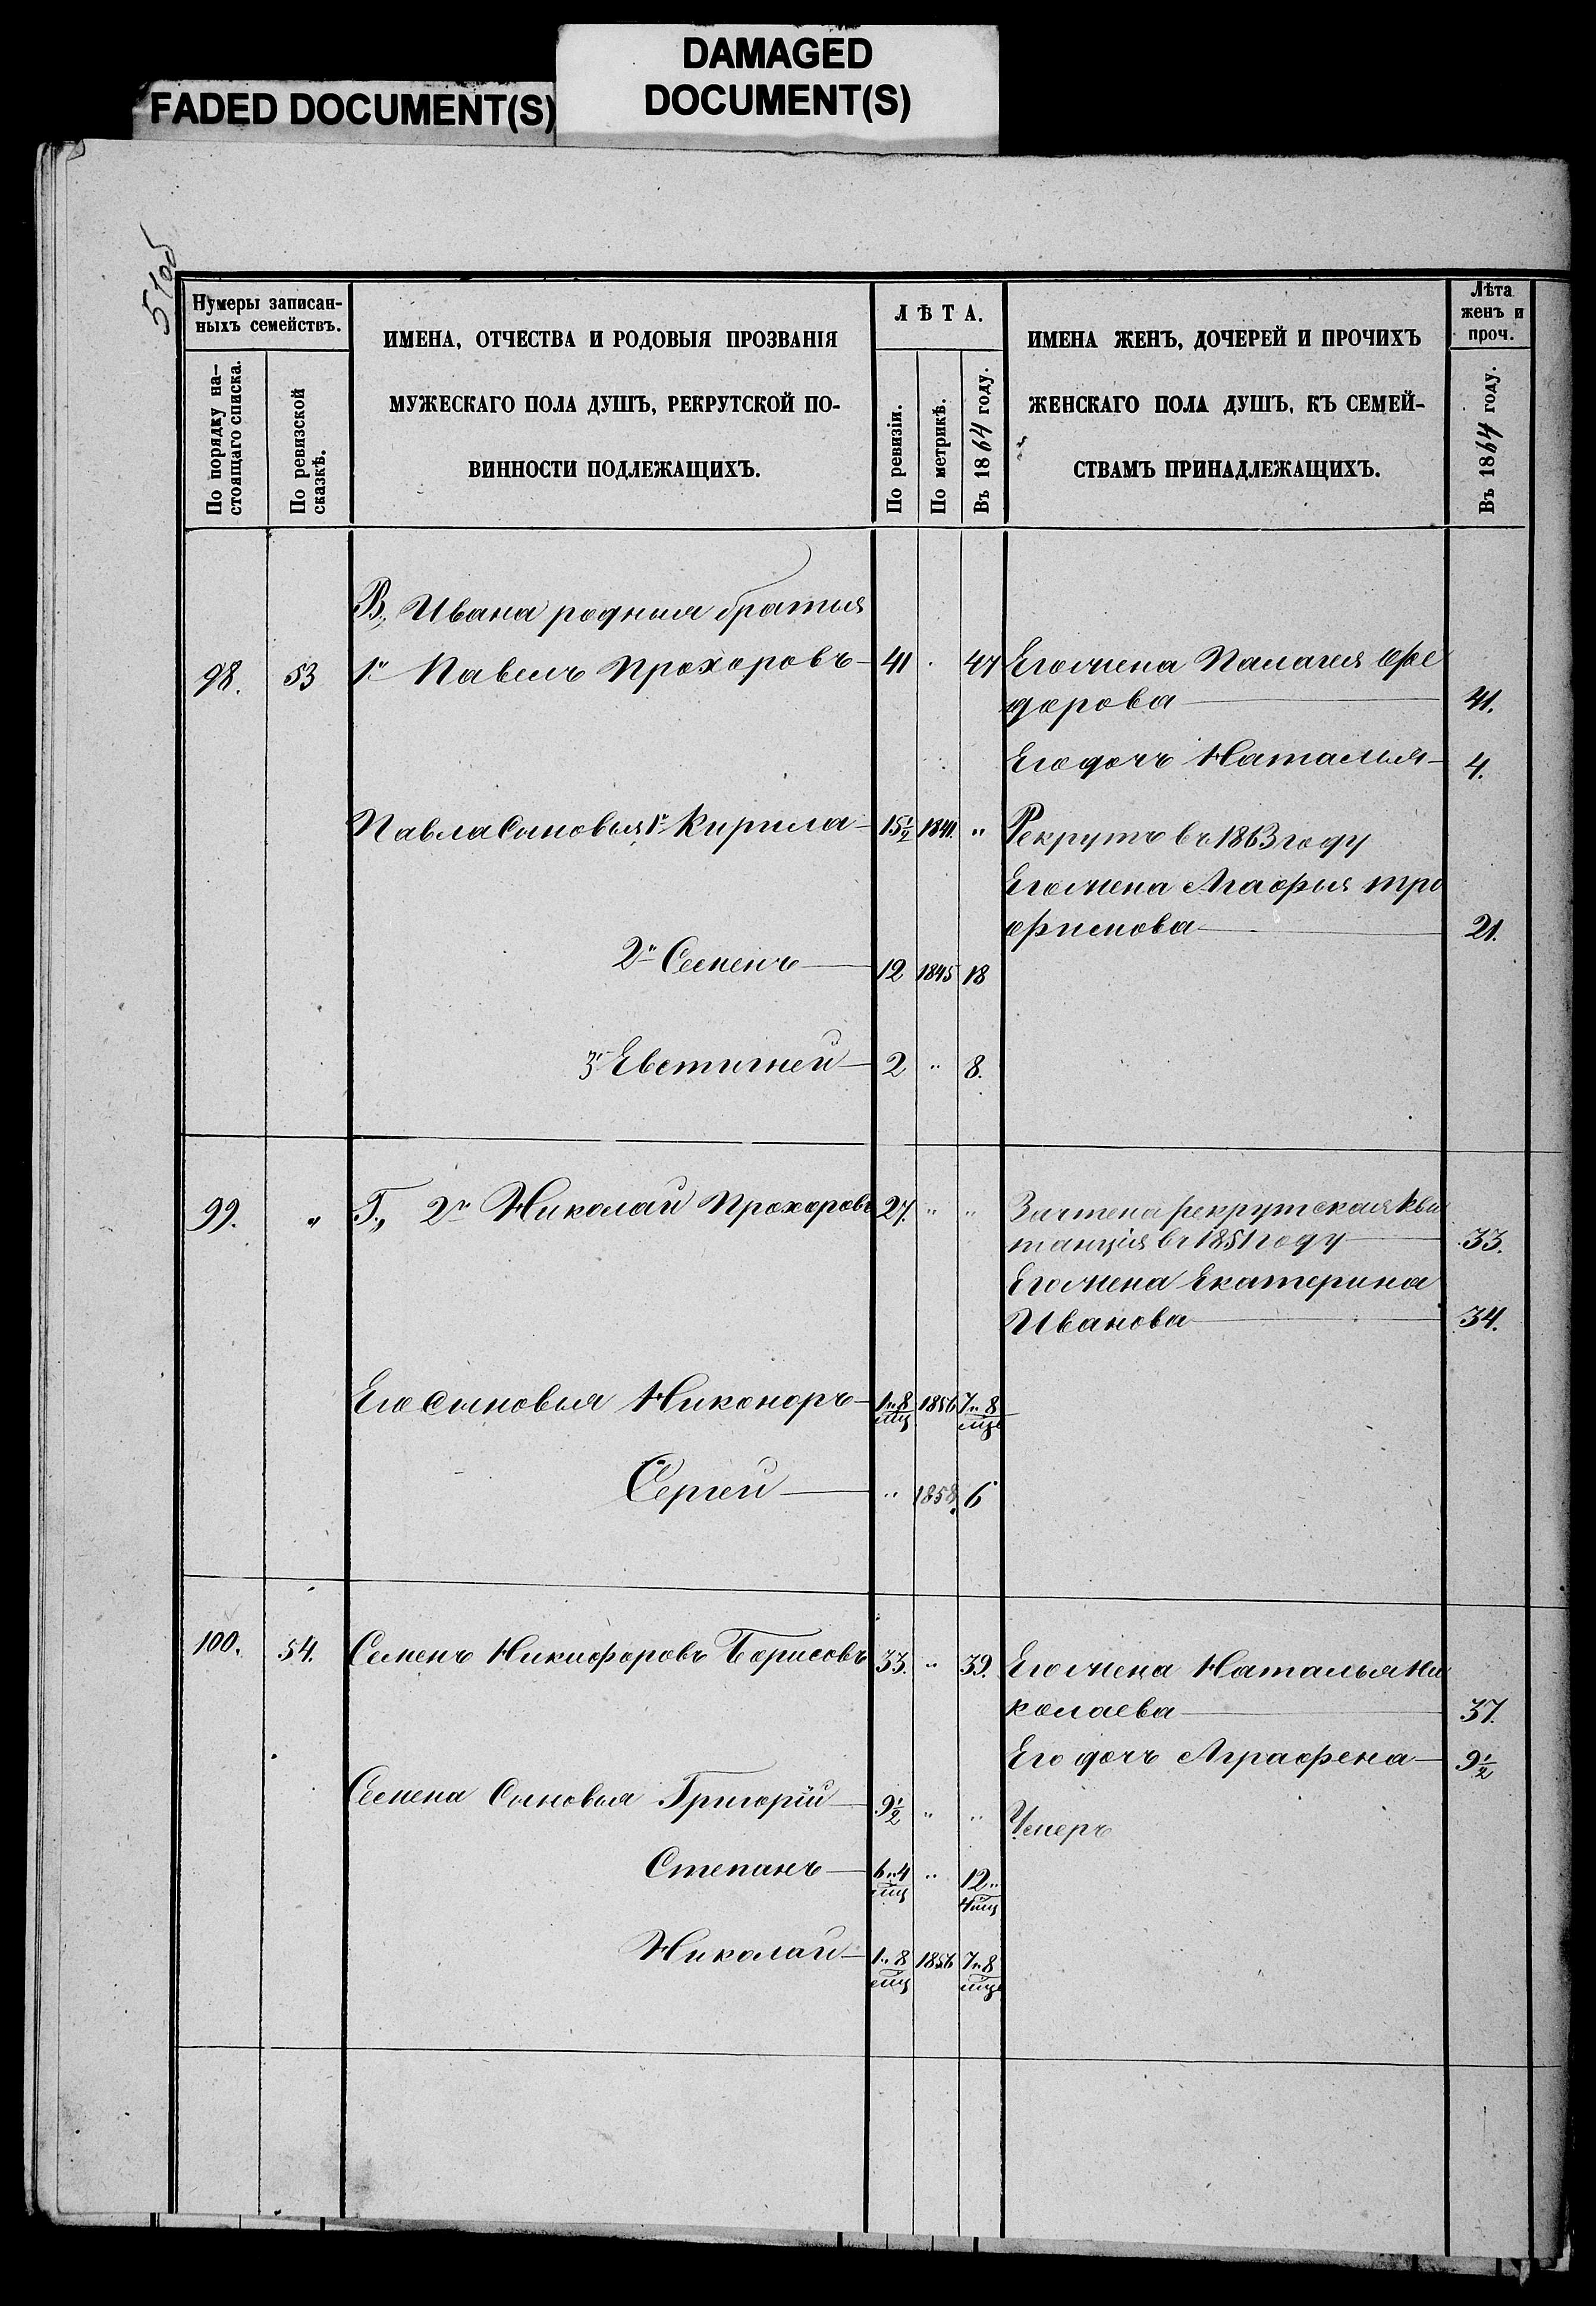 FADED DOCUMENT(S)
DAMAGED
DOCUMENT(S)
51об
Нумеры записан-
ныхъ семействъ.
По порядку на-
стоящаго списка.
По ревизской
сказкѣ.
ИМЕНА, ОТЧЕСТВА И РОДОВЫЯ ПРОЗВАНІЯ
МУЖЕСКАГО ПОЛА ДУШЪ, РЕКРУТСКОЙ ПО-
ВИННОСТИ ПОДЛЕЖАЩИХЪ.
ЛѢТА.
По ревизіи.
По метрикѣ.
Въ 1864 году.
ИМЕНА ЖЕНЪ, ДОЧЕРЕЙ И ПРОЧИХЪ
ЖЕНСКАГО ПОЛА ДУШЪ, КЪ СЕМЕЙ-
СТВАМЪ ПРИНАДЛЕЖАЩИХЪ.
Лѣта
женъ и
проч.
Въ 1864 году.
В., Ивана родныя братья
98. 53 1й Павелъ Прохоровъ 41 " 47 Его жена Палагея Фе
дорова 41.
Его дочь Наталья 4.
Павла Сыновья 1й Кирила 15½ 1841. " Рекрутъ въ 1863 году
Его жена Агафья Тро
фимова 21.
2й Семенъ 12 1845 18
3й Евстигней 2 " 8.
99. " Г., 2й Николай Прохоровъ 27. " " Зачтена рекрутская кви
танція въ 1851 году 33.
Его жена Екатерина
Иванова 34.
Его сыновья Никоноръ 1 " 8 мц 1856 7 " 8 мце
Сергей " 1858. 6
100. 54. Семенъ Никифоровъ Борисовъ 33. " 39. Его жена Наталья Ни
колаева 37.
Его дочь Аграфена 9½
Семена Сыновья Григорій 9½ " " Умеръ
Степанъ 6 " 4 мц " 12 " 4 мц
Николай 1 " 8 мц 1856 7 " 8 мце